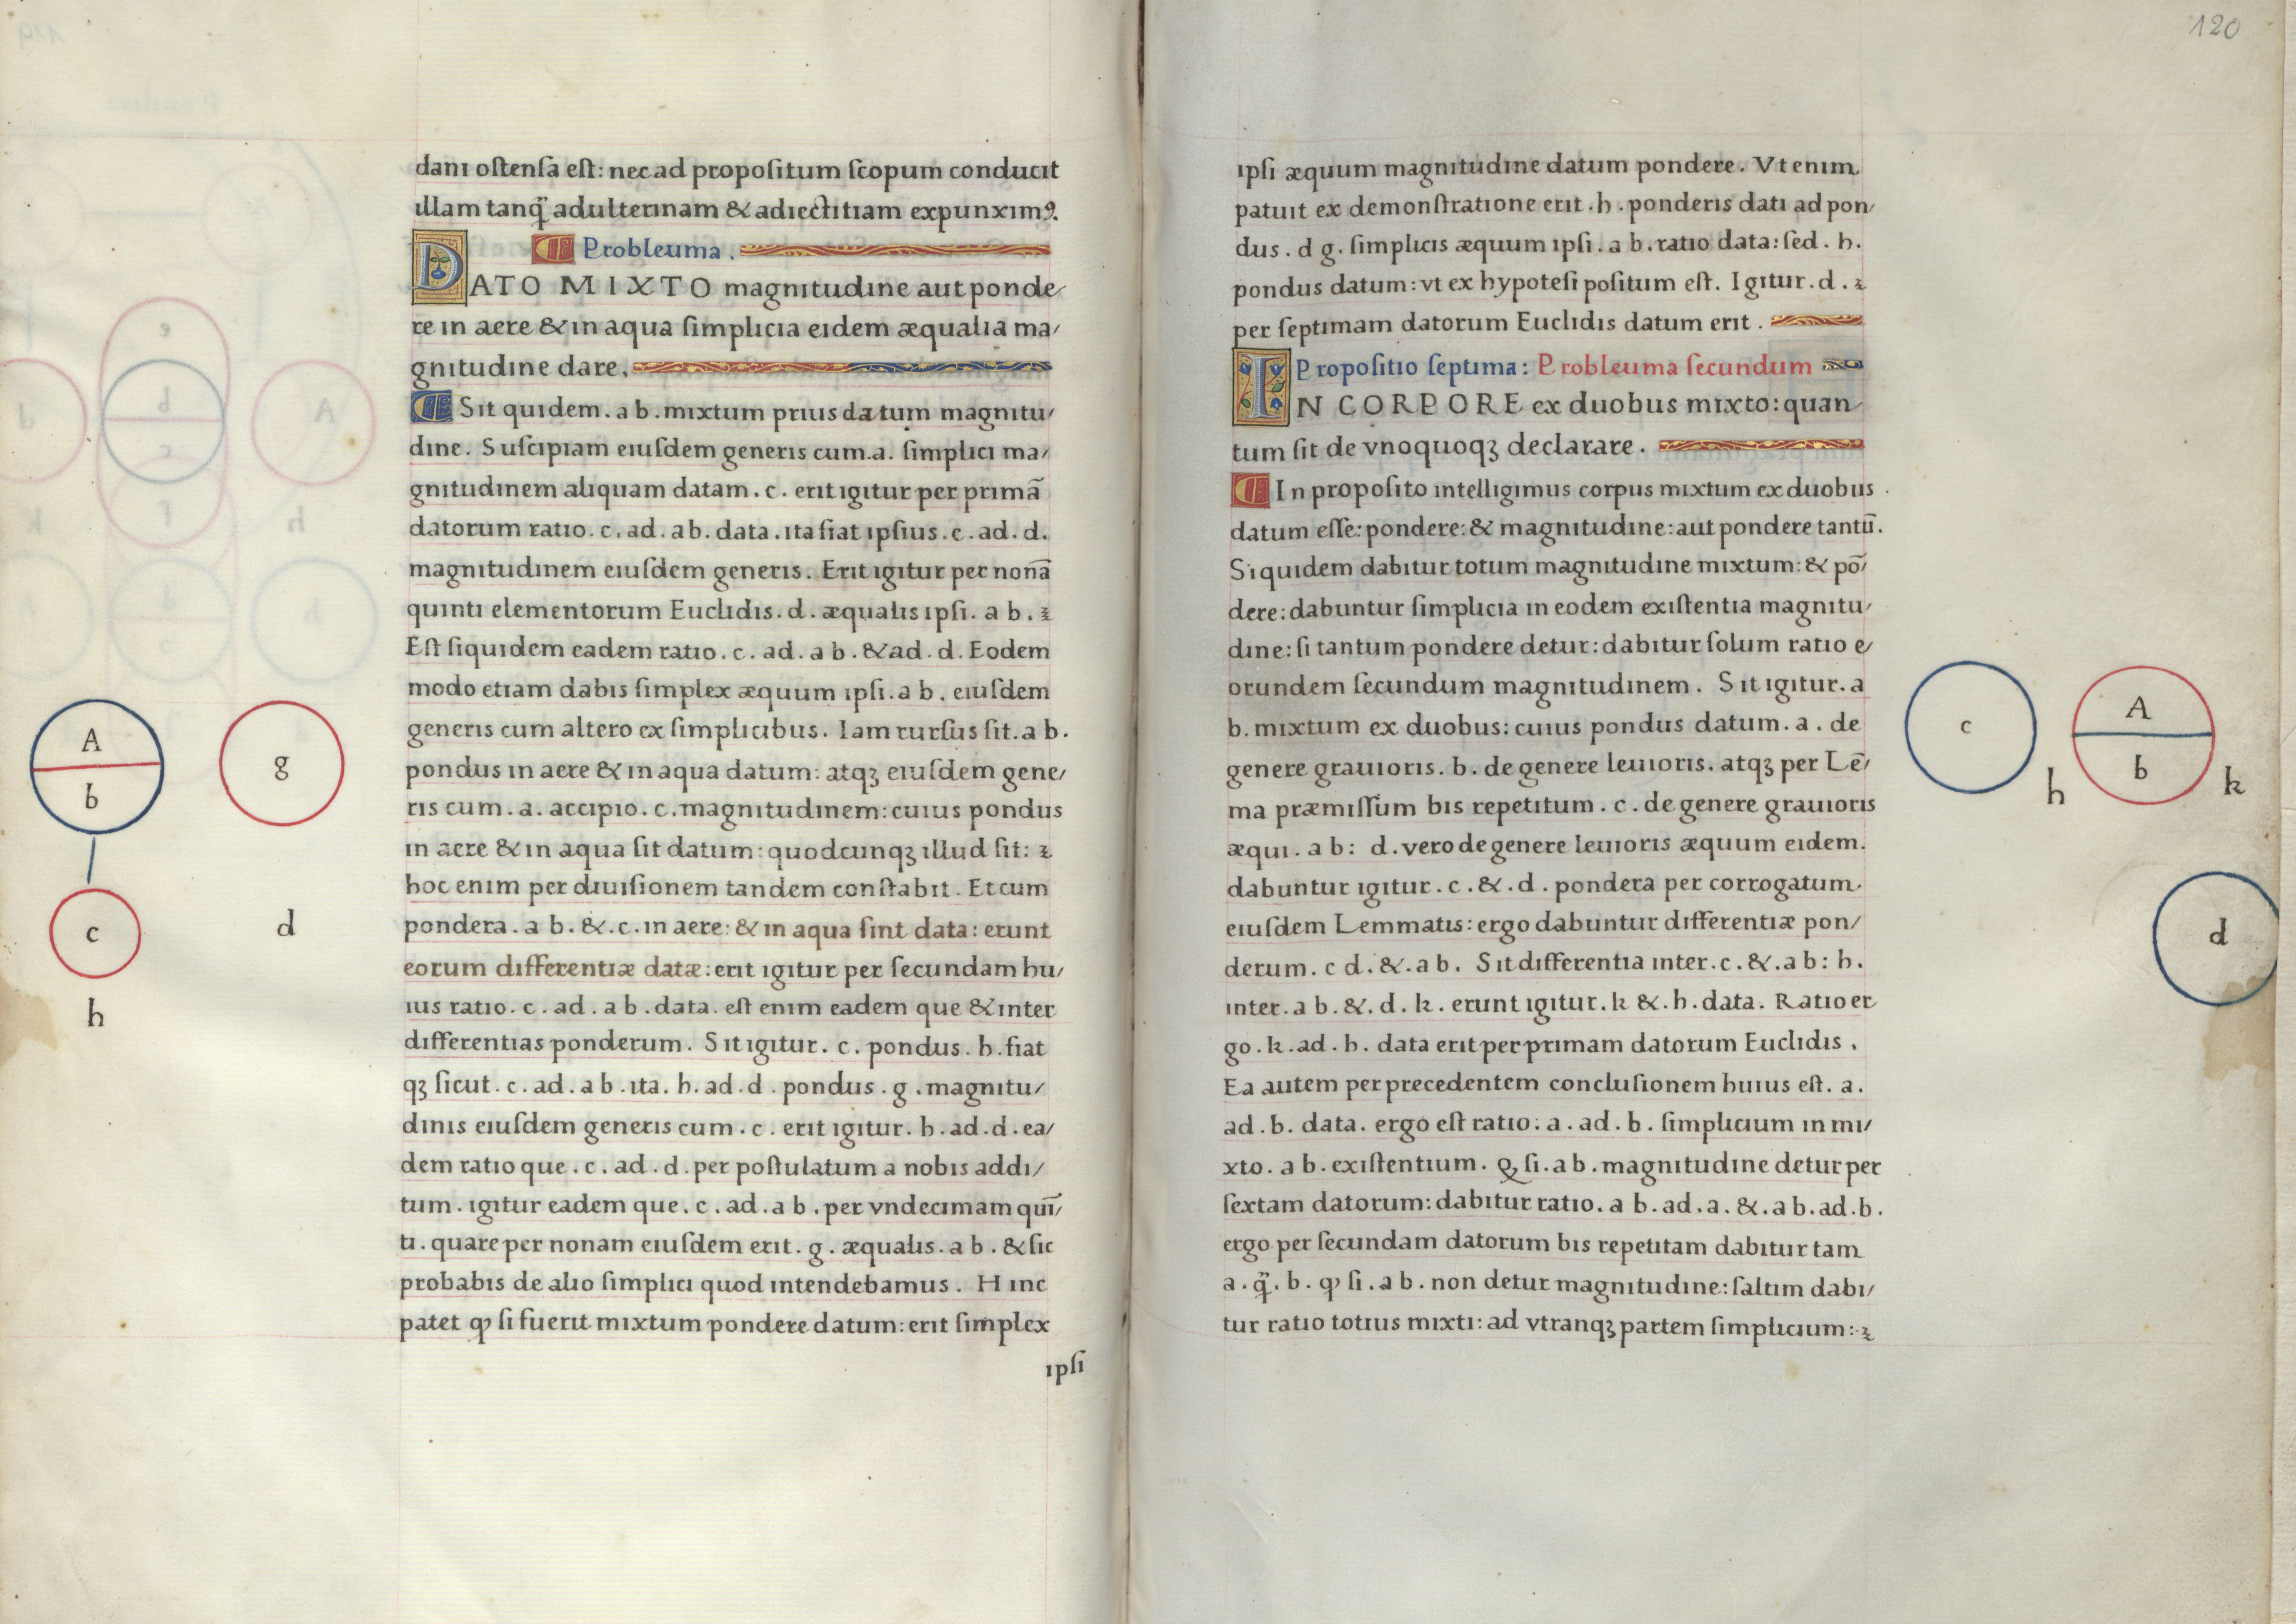 dani oſtenſa eſt: nec ad propoſitum ſcopum conducit
illam tanq̃ adulterinam & adiectitiam expunximꝰ.
Probleuma.
DATO MIXTO magnitudine aut ponde/
re in aere & in aqua ſimplicia eidem æqualia ma/
gnitudine dare.
Sit quidem. a b. mixtum prius datum magnitu/
dine. Suſcipiam eiuſdem generis cum. a. ſimplici ma/
gnitudinem aliquam datam. c. erit igitur per primā
datorum ratio. c. ad. a b. data. ita fiat ipſius. c. ad. d.
magnitudinem eiuſdem generis. Erit igitur per nonā
quinti elementorum Euclidis. d. æqualis ipſi. a b. ꝛ
Eſt ſiquidem eadem ratio. c. ad. a b. & ad. d. Eodem
modo etiam dabis ſimplex æquum ipſi. a b. eiuſdem
generis cum altero ex ſimplicibus. Iam rurſus ſit. a b.
pondus in aere & in aqua datum: atqꝫ eiuſdem gene/
ris cum. a. accipio. c. magnitudinem: cuius pondus
in aere & in aqua ſit datum: quodcunqꝫ illud ſit: ꝛ
hoc enim per diuiſionem tandem conſtabit. Et cum
pondera. a b. &. c. in aere: & in aqua ſint data: erunt
eorum differentiæ datæ: erit igitur per ſecundam hu/
ius ratio. c. ad. a b. data. eſt enim eadem que & inter
differentias ponderum. Sit igitur. c. pondus. h. fiat
qꝫ ſicut. c. ad. a b. ita. h. ad. d. pondus. g. magnitu/
dinis eiuſdem generis cum. c. erit igitur. h. ad. d. ea/
dem ratio que. c. ad. d. per poſtulatum a nobis addi/
tum. igitur eadem que. c. ad. a b. per vndecimam quī/
ti. quare per nonam eiuſdem erit. g. æqualis. a b. & ſic
probabis de alio ſimplici quod intendebamus. Hinc
patet ꝙ ſi fuerit mixtum pondere datum: erit ſimplex
ipſi
A
b
g
c
d
h
120
ipſi æquum magnitudine datum pondere. Vt enim
patuit ex demonſtratione erit. h. ponderis dati ad pon/
dus. d g. ſimplicis æquum ipſi. a b. ratio data: ſed. h.
pondus datum: vt ex hypoteſi poſitum eſt. Igitur. d. ꝛ
per ſeptimam datorum Euclidis datum erit.
Propoſitio ſeptima: Probleuma ſecundum
IN CORPORE ex duobus mixto: quan/
tum ſit de vnoquoqꝫ declarare.
In propoſito intelligimus corpus mixtum ex duobus
datum eſſe: pondere: & magnitudine: aut pondere tantū.
Siquidem dabitur totum magnitudine mixtum: & pō/
dere: dabuntur ſimplicia in eodem exiſtentia magnitu/
dine: ſi tantum pondere detur: dabitur ſolum ratio e/
orundem ſecundum magnitudinem. Sit igitur. a
b. mixtum ex duobus: cuius pondus datum. a. de
genere grauioris. b. de genere leuioris. atqꝫ per Lē/
ma præmiſſum bis repetitum. c. de genere grauioris
æqui. a b: d. vero de genere leuioris æquum eidem.
dabuntur igitur. c. &. d. pondera per corrogatum
eiuſdem Lemmatis: ergo dabuntur differentiæ pon/
derum. c d. &. a b. Sit differentia inter. c. &. a b: h.
inter. a b. &. d. k. erunt igitur. k &. h. data. Ratio er
go. k. ad. h. data erit per primam datorum Euclidis.
Ea autem per precedentem concluſionem huius eſt. a.
ad. b. data. ergo eſt ratio. a. ad. b. ſimplicium in mi/
xto. a b. exiſtentium. Ꝙ ſi. a b. magnitudine detur per
ſextam datorum: dabitur ratio. a b. ad. a. &. a b. ad. b.
ergo per ſecundam datorum bis repetitam dabitur tam
a. q̃. b. ꝙ ſi. a b. non detur magnitudine: ſaltim dabi/
tur ratio totius mixti: ad vtranqꝫ partem ſimplicium: ꝛ
c
h
A
b
k
d